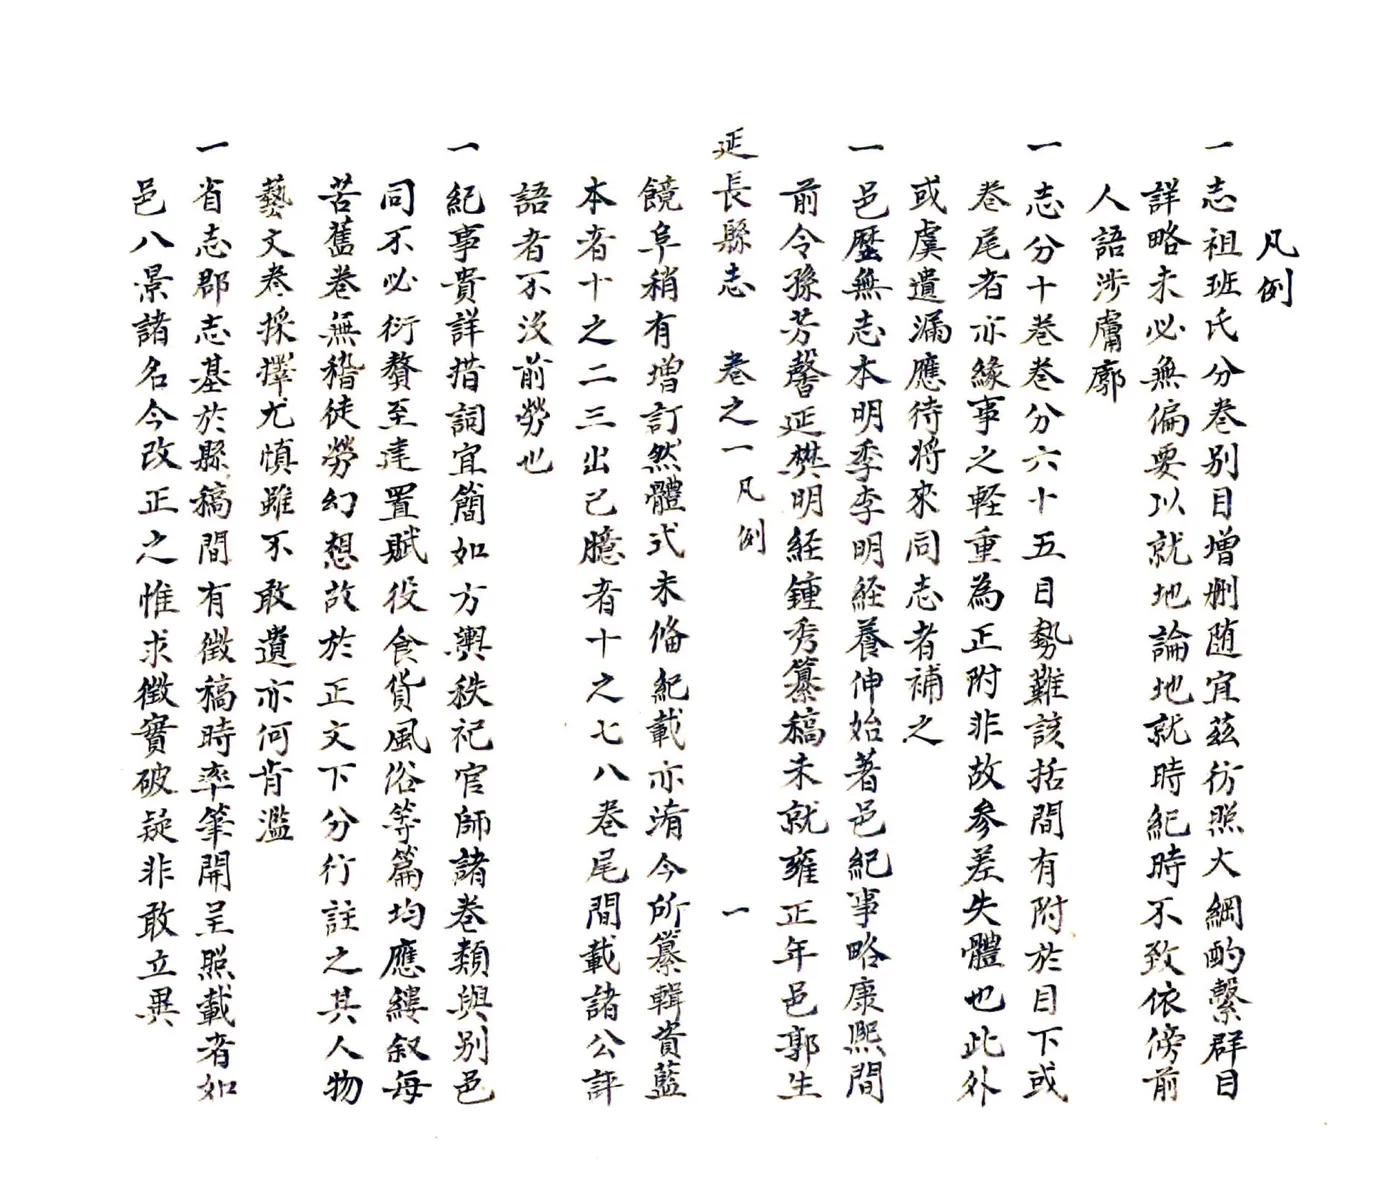 凡例
一志祖班氏分卷別目增刪随宜茲彷照大綱酌繫群目
詳略未必無偏要以就地論地就時紀時不致依傍前
人語涉膚廓
一志分十卷卷分六十五目勢難該括間有附於目下或
卷尾者亦緣事之軽重為正附非故參差失體也此外
或虞遺漏應待將來同志者補之
一邑歷無志本明季李明経養伸始著邑紀事略康熙間
前令孫芳馨延樊明経鍾秀纂稿未就雍正年邑郭生
延長縣志 卷之一 凡例 一
饒阜稍有增訂然體式未俻紀載亦淆今所纂輯資藍
本者十之二三出己臆者十之七八卷尾間載諸公評
語者不沒前勞也
一紀事貴詳措詞宜簡如方輿秩祀官師諸卷類與別邑
同不必衍贅至建置賦役食貨風俗等篇均應縷叙每
苦舊卷無稽徒勞幻想故於正文下分行註之其人物
藝文卷採擇尤慎雖不敢遺亦何肯濫
一省志郡志基於縣稿間有徵稿時率筆開呈照載者如
邑八景諸名今改正之惟求徵實破疑非敢立異